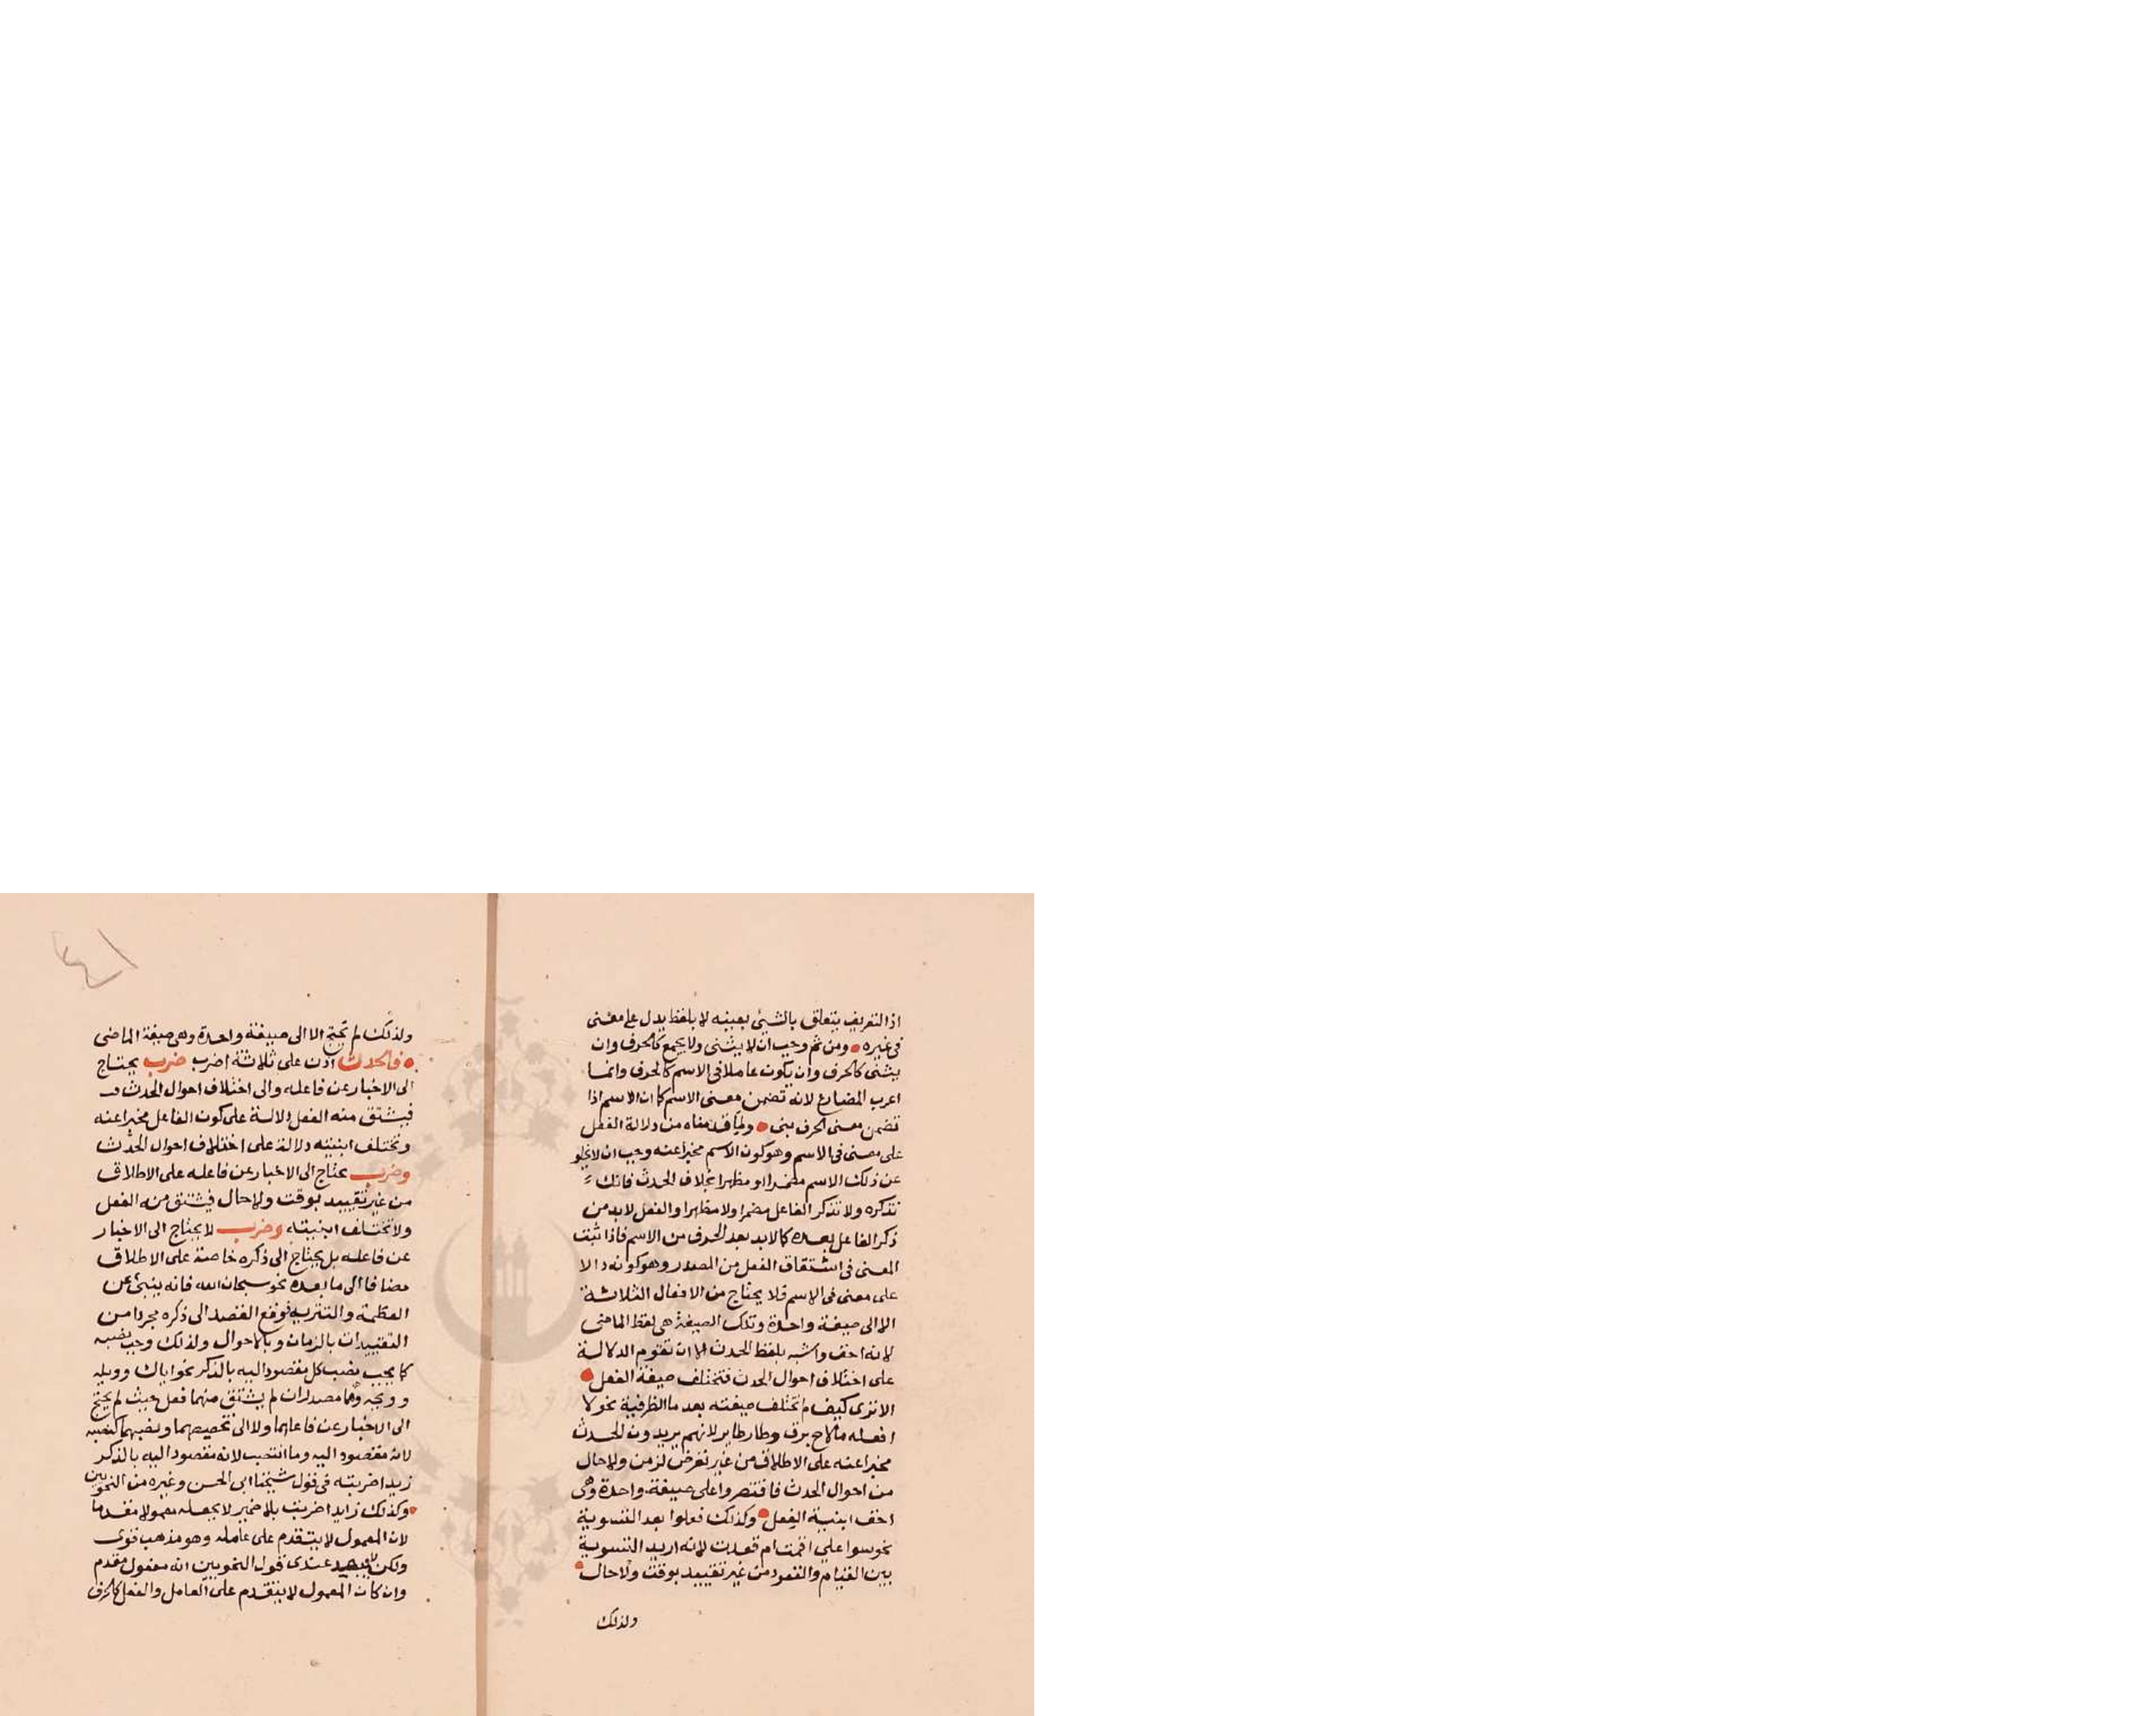 اذ التعريف يتعلق بالشيئ بعينه لا بلفظ يدل على معنى
فى غيره ومن ثم وجب ان لا يثنى ولا يجمع كالحرف وان
يثنى كالحرف وان يكون عاملا فى الاسم كالحرف وانما
اعرب المضارع لانه تضمن معنى الاسم كما ان الاسم اذا
تضمن معنى الحرف بنى ولما قدمناه من دلالة الفعل
على معنى فى الاسم وهو كون الاسم مخبرا عنه وجب ان لا يخلو
عن ذلك الاسم مضمرا او مظهرا بخلاف الحدث فانك
تذكره ولا تذكر الفاعل مضمرا ولا مظهرا والفعل لابد من
ذكر الفاعل بعده كما لابد بعد الحرف من الاسم فاذا ثبت
المعنى فى اشتقاق الفعل من المصدر وهو كونه دالا
على معنى فى الاسم فلا يحتاج من الافعال الثلاثة
الا الى صيغة واحدة وتلك الصيغة هى لفظ الماضى
لانه اخف واشبه بلفظ الحدث الا ان تقوم الدلالة
على اختلاف احوال الحدث فتختلف صيغة الفعل
الا ترى كيف لم تختلف صيغته بعد ما الظرفية نحو لا
افعله ما لاح برق وطار طاير لانهم يريدون الحدث
مخبرا عنه على الاطلاق من غير تعرض لزمن ولا حال
من احوال الحدث فاقتصروا على صيغة واحدة وهى
اخف ابنية الفعل وكذلك فعلوا بعد التسوية
نحو سوا على اقمت ام قعدت لانه اريد التسوية
بين القيام والقعود من غير تقييد بوقت ولا حال
ولذلك
٤١
ولذلك لم يحتج الا الى صيغة واحدة وهى صيغة الماضى
فالحدث اذن على ثلاثة اضرب ضرب يحتاج
الى الاخبار عن فاعله والى اختلاف احوال الحدث
فيشتق منه الفعل دلالة على كون الفاعل مخبرا عنه
وتختلف ابنيته دلالة على اختلاف احوال الحدث
وضرب يحتاج الى الاخبار عن فاعله على الاطلاق
من غير تقييد بوقت ولا حال فيشتق منه الفعل
ولا تختلف ابنيته وضرب لا يحتاج الى الاخبار
عن فاعله بل يحتاج الى ذكره خاصة على الاطلاق
مضافا الى ما بعده نحو سبحان الله فانه ينبئ عن
العظمة والتنزيه فوقع القصد الى ذكره مجردا من
التقييدات بالزمان وبالاحوال ولذلك وجب نصبه
كما يجب نصب كل مقصود اليه بالذكر نحو اياك وويله
وويحه وهما مصدران لم يشتق منهما فعل حيث لم يحتج
الى الاخبار عن فاعلهما ولا الى تخصيصهما ونصبهما كنصبه
لانه مقصود اليه وما انتصب لانه مقصود اليه بالذكر
زيدا ضربته فى قول شيخنا ابى الحسن وغيره من النحويين
وكذلك زايدا ضربت بلا ضمير لا يجعله معمولا مقدما
لان المعمول لا يتقدم على عامله وهو مذهب قوى
ولكن لا يبعد عندى قول النحويين انه مفعول مقدم
وان كان المعمول لا يتقدم على العامل والفعل كالحرف